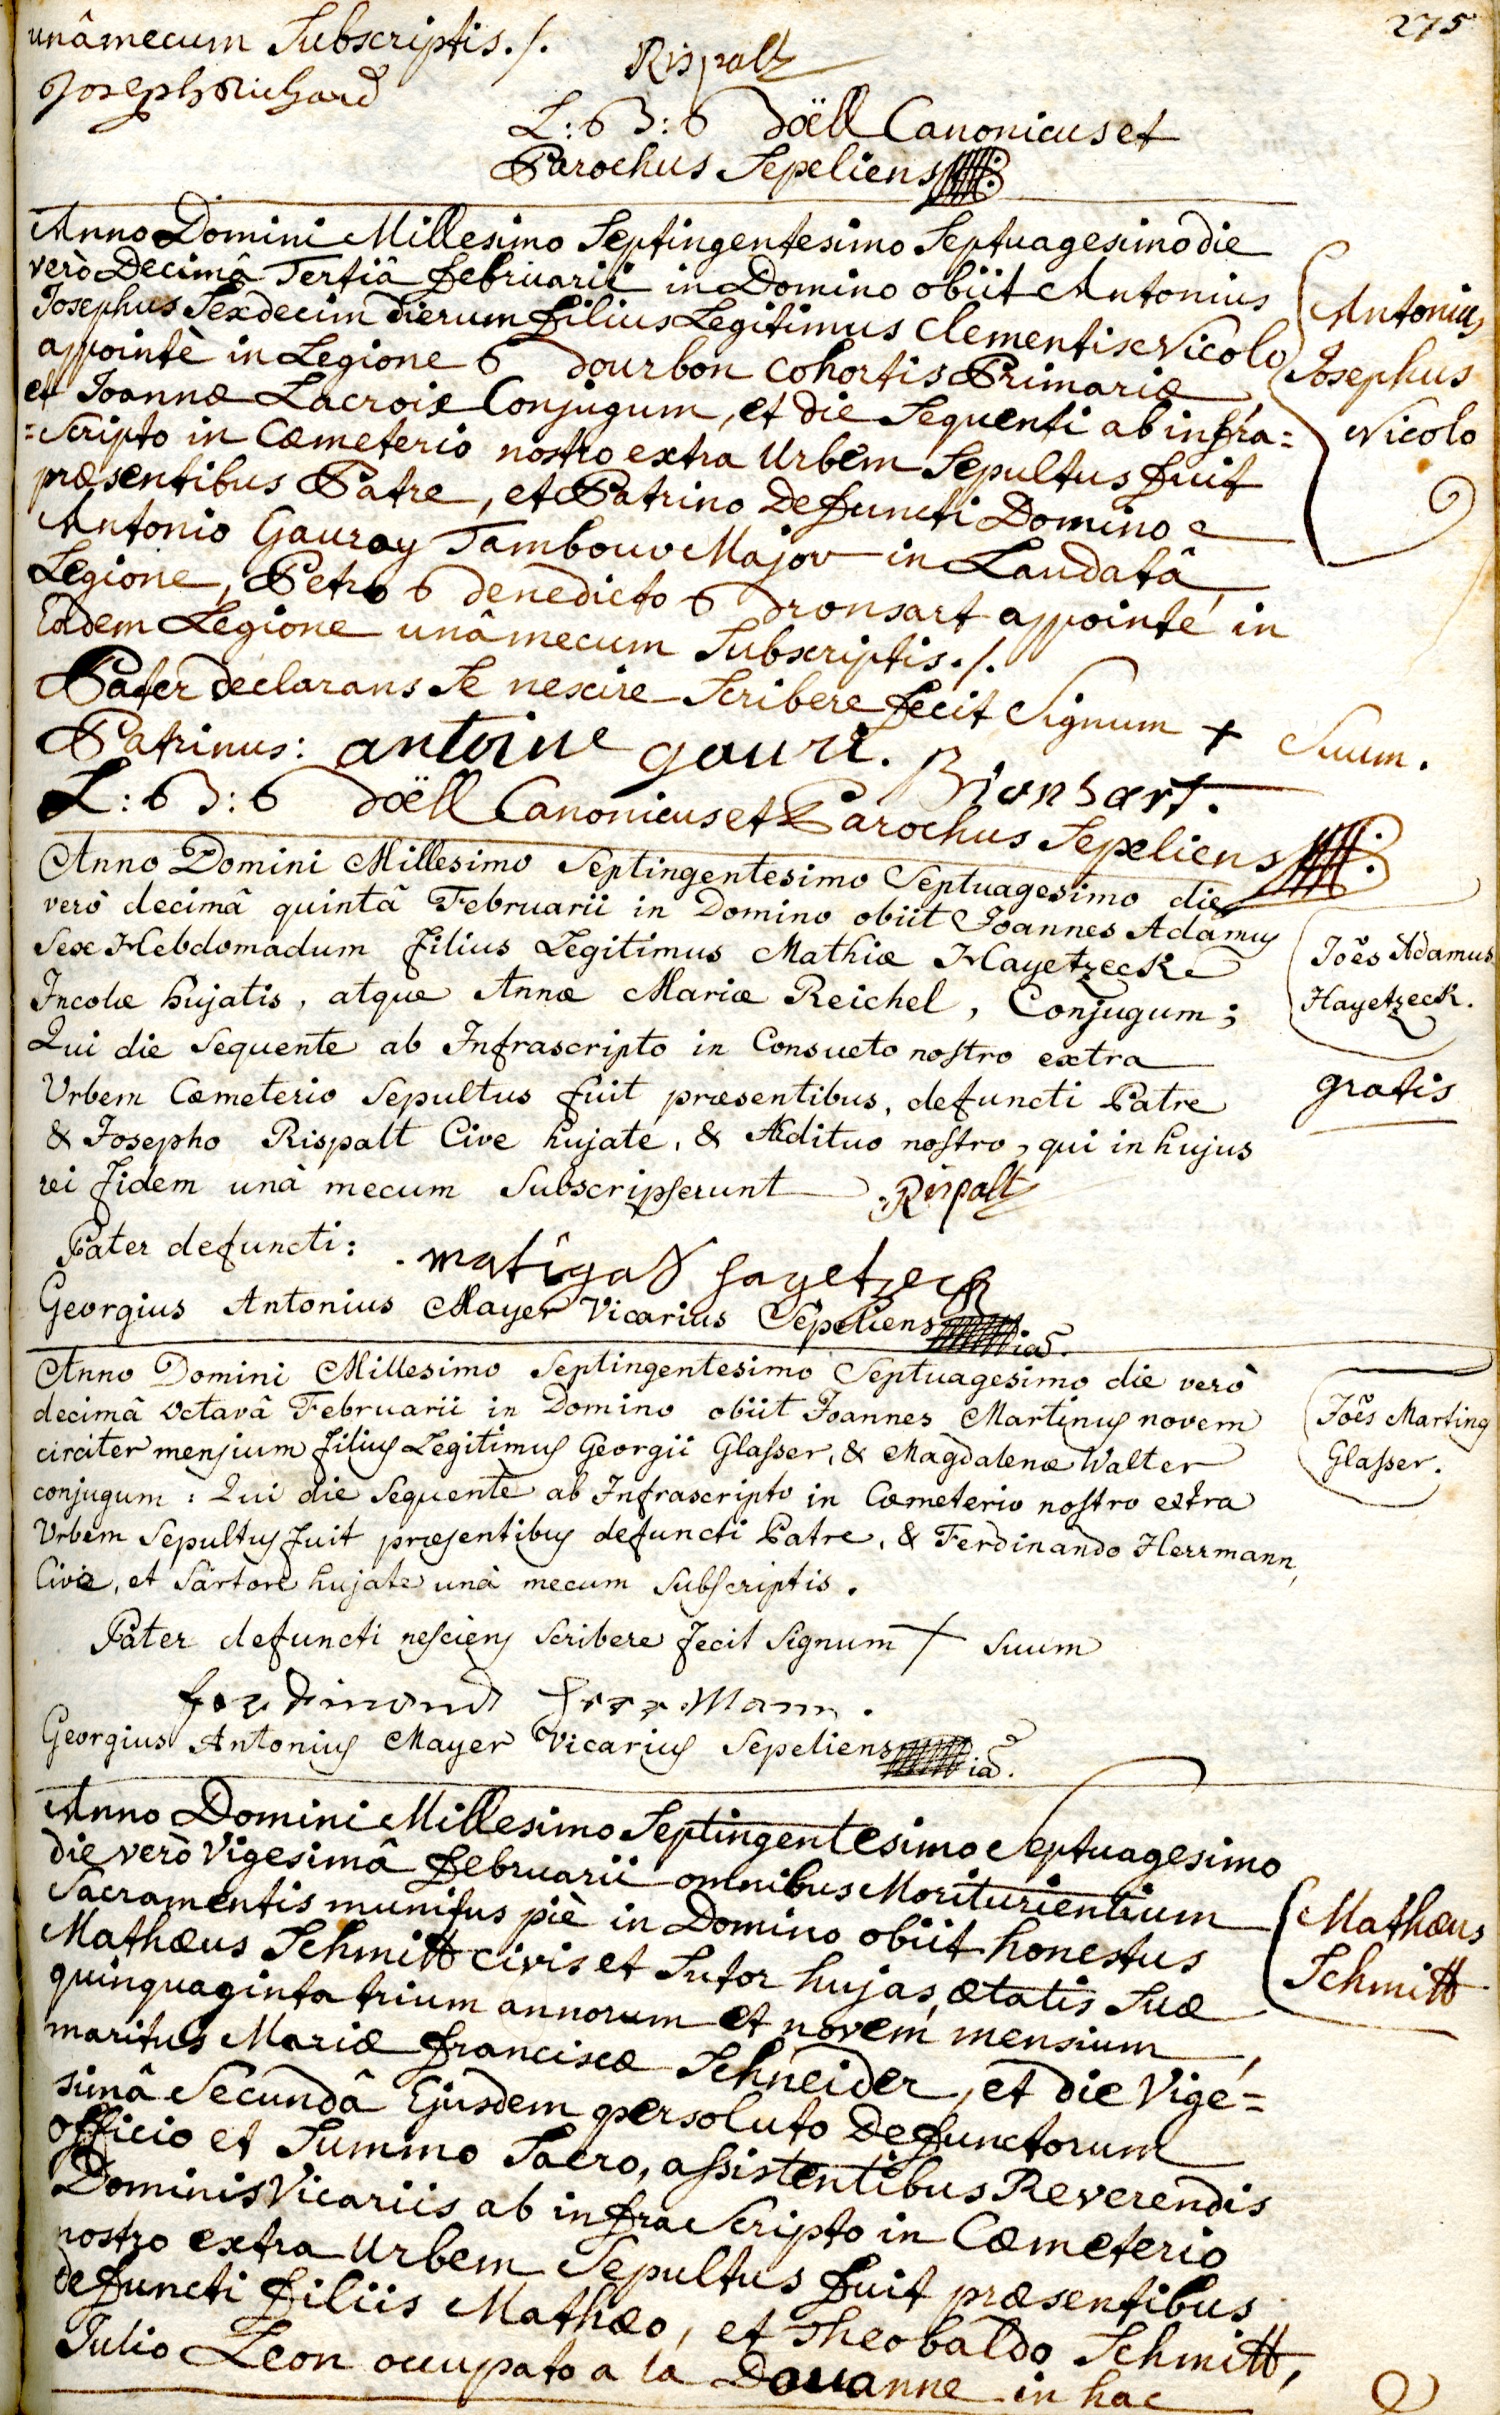 275
unâ mecum Subscriptis ./.
Joseph Richard
Rispalt
L: B: Böell Canonicus et
Parochus Sepeliens
Anno Domini Millesimo Septingentesimo Septuagesimo die
verò Decimâ Tertiâ februarii in Domino obiit Antonius
Josephus Sexdecim dierum filius Legitimus Clementis Nicolo
appointè in Legione Bourbon Cohortis Primariæ
et Joannæ Lacroix Conjugum, et die Sequenti ab infra=
=Scripto in Cœmeterio nostro extra Urbem Sepultus fuit
præsentibus Patre, et Patrino Defuncti Domino
Antonio Gauray Tambour Major in Laudatâ
Legione, Petro Benedicto Bronsart appointé in
Eâdem Legione unâ mecum Subscriptis ./.
Pater declarans Se nescire Scribere fecit Signum + Suum.
Patrinus: antoine gauri. Bronsart.
L: B: Böell Canonicus et Parochus Sepeliens
Antonius
Josephus
Nicolo
Anno Domini Millesimo Septingentesimo Septuagesimo die
verò decimâ quintâ Februarii in Domino obiit Joannes Adamus
Sex Hebdomadum filius Legitimus Mathiæ Hayetzeck
Incolæ hujatis, atque Annæ Mariæ Reichel, Conjugum;
Qui die Sequente ab Infrascripto in Consueto nostro extra
Urbem Cœmeterio Sepultus fuit præsentibus, defuncti Patre
& Josepho Rispalt Cive hujate, & Ædituo nostro, qui in hujus
rei fidem unà mecum Subscripserunt Rispalt
Pater defuncti: matigas hayetzeck
Georgius Antonius Mayer Vicarius Sepeliens
Joēs Adamus
Hayetzeck.
gratis
Anno Domini Millesimo Septingentesimo Septuagesimo die verò
decimâ octavâ Februarii in Domino obiit Joannes Martinus novem
circiter mensium filius Legitimus Georgii Glasser, & Magdalenæ Walter
conjugum: Qui die Sequente ab Infrascripto in Cœmeterio nostro extra
Urbem Sepultus fuit præsentibus defuncti Patre, & Ferdinando Herrmann,
Cive, et Sartore hujate unà mecum Subscriptis.
Pater defuncti nesciens Scribere fecit Signum + Suum
ferdinand herrmann.
Georgius Antonius Mayer Vicarius Sepeliens
Joēs Martinus
Glasser.
Anno Domini Millesimo Septingentesimo Septuagesimo
die verò Vigesimâ februarii omnibus Moriturientium
Sacramentis munitus piè in Domino obiit honestus
Mathæus Schmitt civis et Sutor hujas, ætatis Suæ
quinquaginta trium annorum et novem mensium,
maritus Mariæ franciscæ Schneider, et die Vige=
simâ Secundâ Ejusdem persoluto Defunctorum
officio et Summo Sacro, assistentibus Reverendis
Dominis Vicariis ab infra Scripto in Cœmeterio
nostro extra Urbem Sepultus fuit præsentibus
defuncti filiis Mathæo, et Theobaldo Schmitt,
Julio Leon occupato a la Douanne in hac
Mathæus
Schmitt